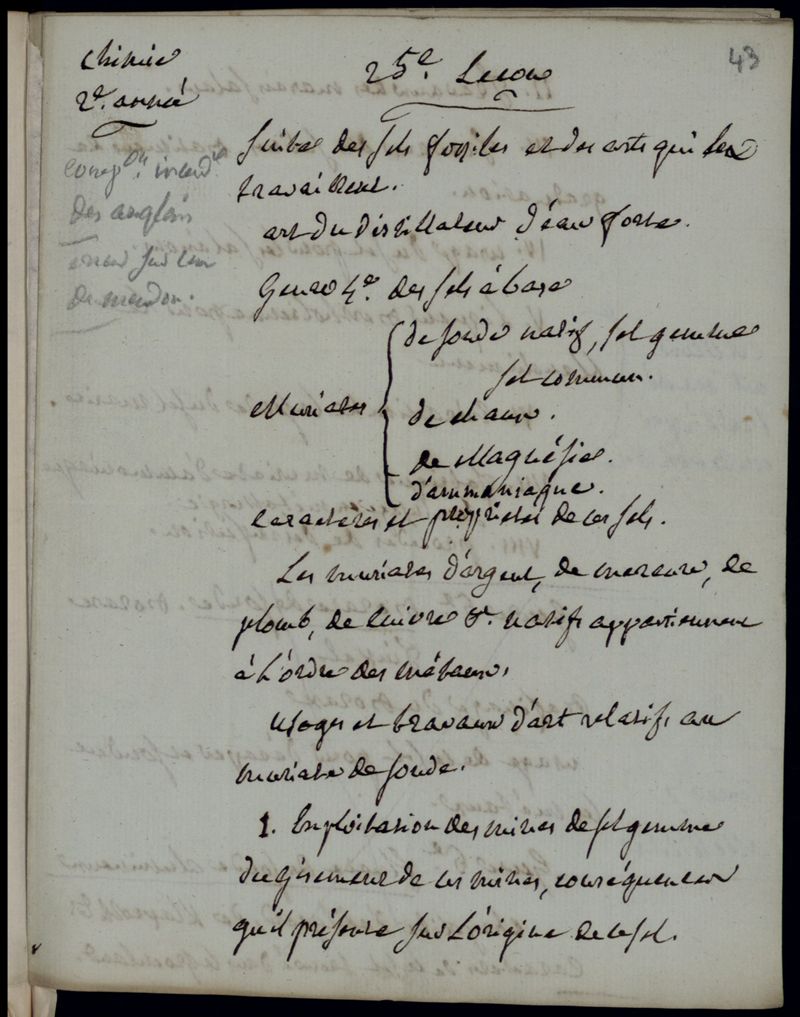 43
Chimie
2e. année
25e. Leçon
Suite des sels fossiles et des arts qui les
travaillent.
art du distillateur d'eau forte.
des anglais
Genre 4e. des sels à base
Muriates
de soude natif, sel gemme
sel commun.
de chaux.
de Magnésie.
d'ammoniaque.
Caractères et propriétés de ces sels.
Les muriates d'argent, de mercure, de
plomb, de cuivre &c. natifs appartiennent
à l'ordre des métaux.
Usages et travaux d'art relatifs au
muriate de soude.
1. Exploitation des mines de sel gemme
du gisement de ces mines, conséquences
qu'il présente sur l'origine de ce sel.